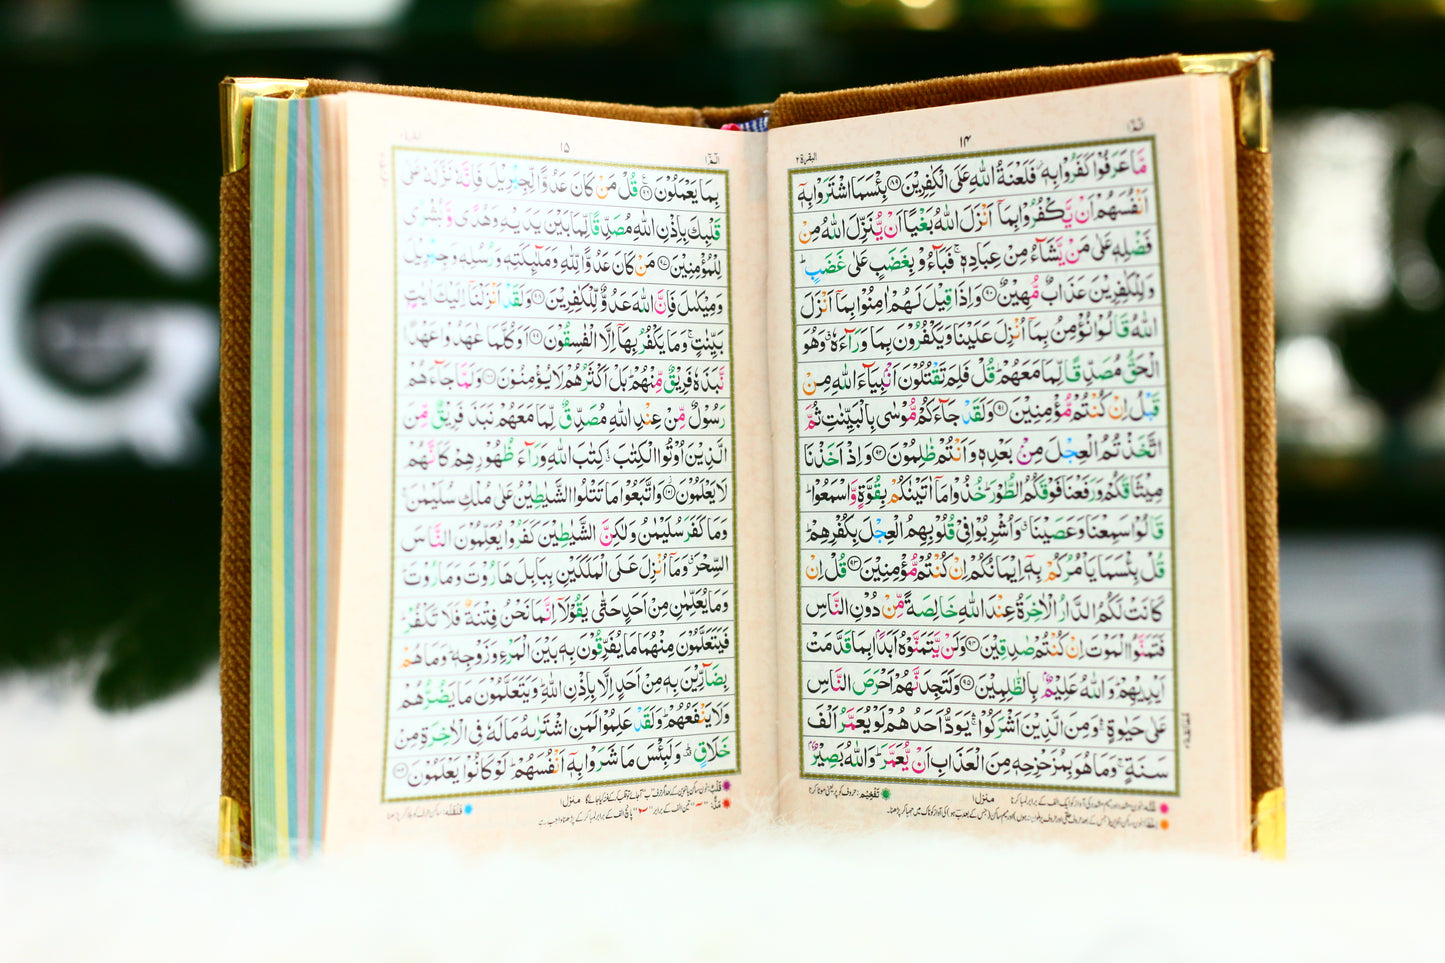 الٓمّٓ ١
١۴
البقرة ٢
مَّا عَرَفُوْا كَفَرُوْا بِهٖ ؗ فَلَعْنَةُ اللّٰهِ عَلَى الْكٰفِرِيْنَ ۸۹ بِئْسَمَا اشْتَرَوْا بِهٖٓ
اَنْفُسَهُمْ اَنْ يَّكْفُرُوْا بِمَاۤ اَنْزَلَ اللّٰهُ بَغْيًا اَنْ يُّنَزِّلَ اللّٰهُ مِنْ
فَضْلِهٖ عَلٰى مَنْ يَّشَآءُ مِنْ عِبَادِهٖ ۚ فَبَآءُوْ بِغَضَبٍ عَلٰى غَضَبٍ ؕ
وَلِلْكٰفِرِيْنَ عَذَابٌ مُّهِيْنٌ ۹۰ وَاِذَا قِيْلَ لَهُمْ اٰمِنُوْا بِمَاۤ اَنْزَلَ
اللّٰهُ قَالُوْا نُؤْمِنُ بِمَاۤ اُنْزِلَ عَلَيْنَا وَيَكْفُرُوْنَ بِمَا وَرَآءَهٗ ۗ وَهُوَ
الْحَقُّ مُصَدِّقًا لِّمَا مَعَهُمْ ؕ قُلْ فَلِمَ تَقْتُلُوْنَ اَنْۢبِيَآءَ اللّٰهِ مِنْ
قَبْلُ اِنْ كُنْتُمْ مُّؤْمِنِيْنَ ۹۱ وَلَقَدْ جَآءَكُمْ مُّوْسٰى بِالْبَيِّنٰتِ ثُمَّ
اتَّخَذْتُمُ الْعِجْلَ مِنْۢ بَعْدِهٖ وَاَنْتُمْ ظٰلِمُوْنَ ۹۲ وَاِذْ اَخَذْنَا
مِيْثَاقَكُمْ وَرَفَعْنَا فَوْقَكُمُ الطُّوْرَ ؕ خُذُوْا مَاۤ اٰتَيْنٰكُمْ بِقُوَّةٍ وَّاسْمَعُوْا ؕ
قَالُوْا سَمِعْنَا وَعَصَيْنَا ۗ وَاُشْرِبُوْا فِىْ قُلُوْبِهِمُ الْعِجْلَ بِكُفْرِهِمْ ؕ
قُلْ بِئْسَمَا يَاْمُرُكُمْ بِهٖٓ اِيْمَانُكُمْ اِنْ كُنْتُمْ مُّؤْمِنِيْنَ ۹۳ قُلْ اِنْ
كَانَتْ لَكُمُ الدَّارُ الْاٰخِرَةُ عِنْدَ اللّٰهِ خَالِصَةً مِّنْ دُوْنِ النَّاسِ
فَتَمَنَّوُا الْمَوْتَ اِنْ كُنْتُمْ صٰدِقِيْنَ ۹۴ وَلَنْ يَّتَمَنَّوْهُ اَبَدًۢا بِمَا قَدَّمَتْ
اَيْدِيْهِمْ ؕ وَاللّٰهُ عَلِيْمٌۢ بِالظّٰلِمِيْنَ ۹۵ وَلَتَجِدَنَّهُمْ اَحْرَصَ النَّاسِ
عَلٰى حَيٰوةٍ ۛۚ وَمِنَ الَّذِيْنَ اَشْرَكُوْا ۛۚ يَوَدُّ اَحَدُهُمْ لَوْ يُعَمَّرُ اَلْفَ
سَنَةٍ ۚ وَمَا هُوَ بِمُزَحْزِحِهٖ مِنَ الْعَذَابِ اَنْ يُّعَمَّرَ ؕ وَاللّٰهُ بَصِيْرٌۢ
منزل ١
الٓمّٓ ١
١۵
بِمَا يَعْمَلُوْنَ ۹۶ قُلْ مَنْ كَانَ عَدُوًّا لِّجِبْرِيْلَ فَاِنَّهٗ نَزَّلَهٗ عَلٰى
قَلْبِكَ بِاِذْنِ اللّٰهِ مُصَدِّقًا لِّمَا بَيْنَ يَدَيْهِ وَهُدًى وَّبُشْرٰى
لِلْمُؤْمِنِيْنَ ۹۷ مَنْ كَانَ عَدُوًّا لِّلّٰهِ وَمَلٰٓئِكَتِهٖ وَرُسُلِهٖ وَجِبْرِيْلَ
وَمِيْكٰىلَ فَاِنَّ اللّٰهَ عَدُوٌّ لِّلْكٰفِرِيْنَ ۹۸ وَلَقَدْ اَنْزَلْنَاۤ اِلَيْكَ اٰيٰتٍۢ
بَيِّنٰتٍ ۚ وَمَا يَكْفُرُ بِهَاۤ اِلَّا الْفٰسِقُوْنَ ۹۹ اَوَكُلَّمَا عٰهَدُوْا عَهْدًا
نَّبَذَهٗ فَرِيْقٌ مِّنْهُمْ ؕ بَلْ اَكْثَرُهُمْ لَا يُؤْمِنُوْنَ ۱۰۰ وَلَمَّا جَآءَهُمْ
رَسُوْلٌ مِّنْ عِنْدِ اللّٰهِ مُصَدِّقٌ لِّمَا مَعَهُمْ نَبَذَ فَرِيْقٌ مِّنَ
الَّذِيْنَ اُوْتُوا الْكِتٰبَ ۙ كِتٰبَ اللّٰهِ وَرَآءَ ظُهُوْرِهِمْ كَاَنَّهُمْ
لَا يَعْلَمُوْنَ ۱۰۱ وَاتَّبَعُوْا مَا تَتْلُوا الشَّيٰطِيْنُ عَلٰى مُلْكِ سُلَيْمٰنَ ۚ
وَمَا كَفَرَ سُلَيْمٰنُ وَلٰكِنَّ الشَّيٰطِيْنَ كَفَرُوْا يُعَلِّمُوْنَ النَّاسَ
السِّحْرَ ۗ وَمَاۤ اُنْزِلَ عَلَى الْمَلَكَيْنِ بِبَابِلَ هَارُوْتَ وَمَارُوْتَ ؕ
وَمَا يُعَلِّمٰنِ مِنْ اَحَدٍ حَتّٰى يَقُوْلَاۤ اِنَّمَا نَحْنُ فِتْنَةٌ فَلَا تَكْفُرْ ؕ
فَيَتَعَلَّمُوْنَ مِنْهُمَا مَا يُفَرِّقُوْنَ بِهٖ بَيْنَ الْمَرْءِ وَزَوْجِهٖ ؕ وَمَا هُمْ
بِضَآرِّيْنَ بِهٖ مِنْ اَحَدٍ اِلَّا بِاِذْنِ اللّٰهِ ؕ وَيَتَعَلَّمُوْنَ مَا يَضُرُّهُمْ
وَلَا يَنْفَعُهُمْ ؕ وَلَقَدْ عَلِمُوْا لَمَنِ اشْتَرٰىهُ مَا لَهٗ فِى الْاٰخِرَةِ مِنْ
خَلَاقٍ ؕ۫ وَلَبِئْسَ مَا شَرَوْا بِهٖٓ اَنْفُسَهُمْ ؕ لَوْ كَانُوْا يَعْلَمُوْنَ ۱۰۲
منزل ١
G